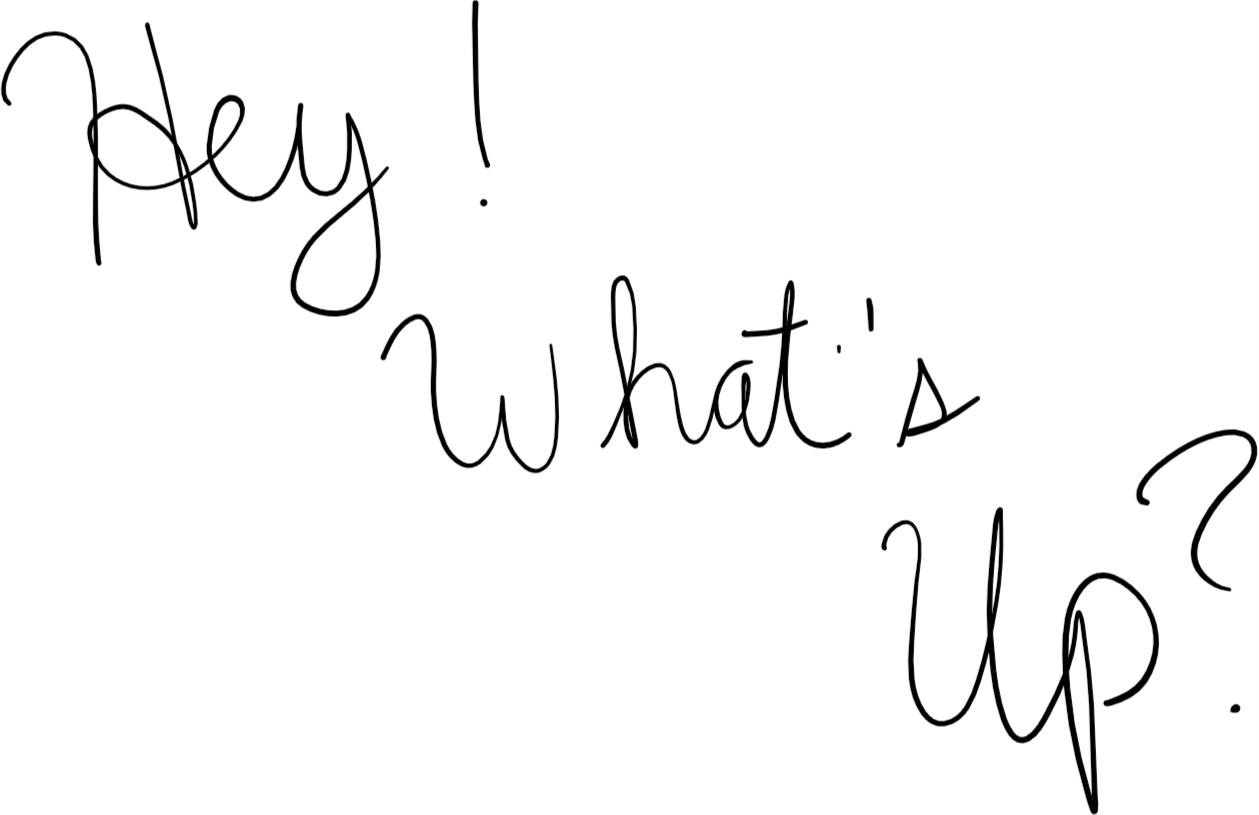 Hey!
What's
Up?